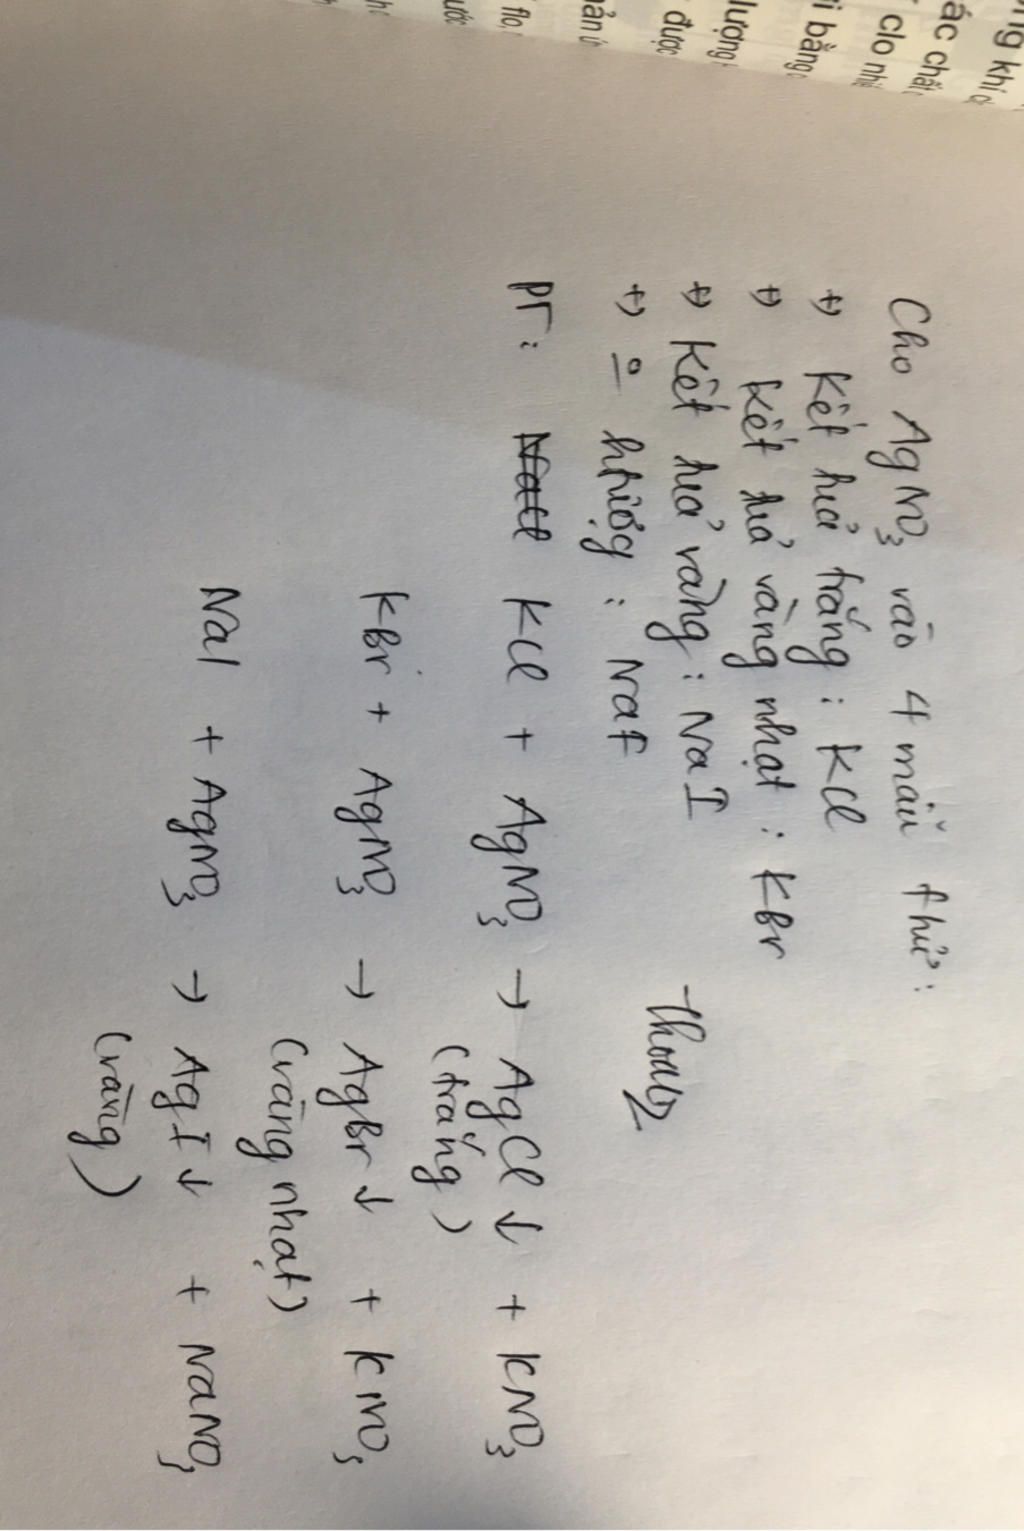 ng khí
ác chất
clo nh
i bằng
lượng
được
ản ứ
flo,
ước
Cho AgNO3 vào 4 mẫu thử:
+) Kết tủa trắng: KCl
+) Kết tủa vàng nhạt: KBr
+) Kết tủa vàng: NaI
+) o htượg: NaF
PT: KCl + AgNO3 → AgCl↓ + KNO3
(trắng)
KBr + AgNO3 → AgBr↓ + KNO3
(vàng nhạt)
NaI + AgNO3 → AgI↓ + NaNO3
(vàng)